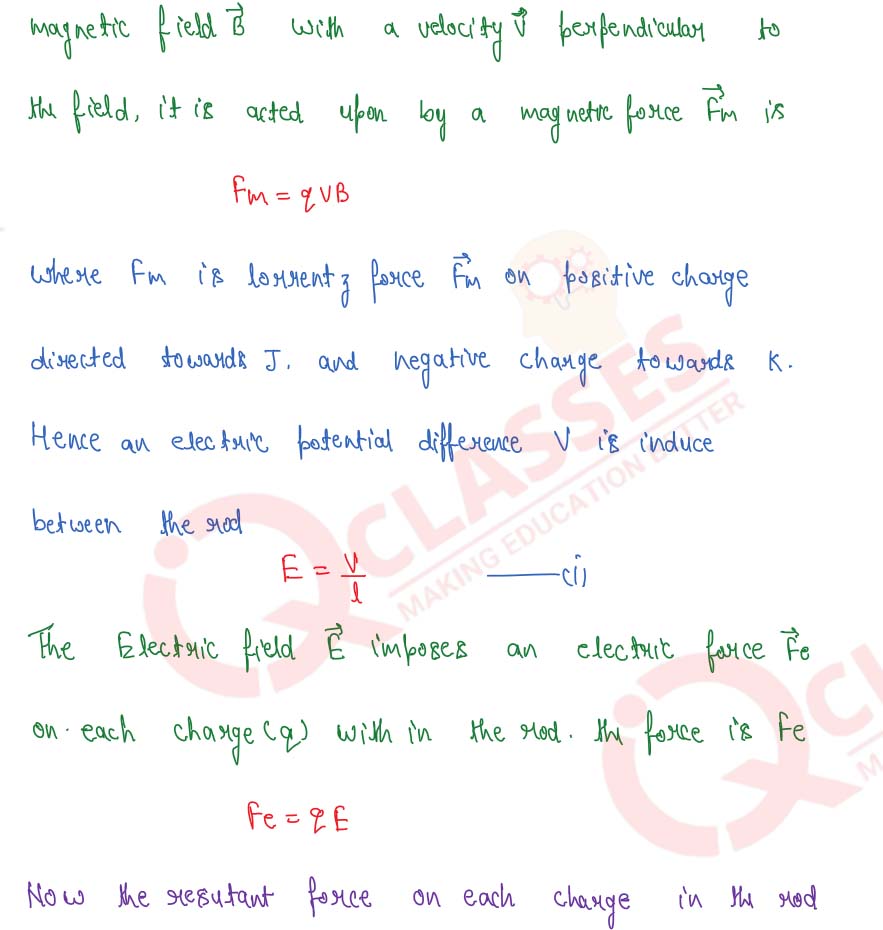 magnetic field B⃗ with a velocity V⃗ perpendicular to
the field, it is acted upon by a magnetic force F⃗m is
Fm = qVB
where Fm is lorrentz force F⃗m on positive charge
directed towards J. and negative charge towards K.
Hence an electric potential difference V is induce
between the rod
E = V/l ———(i)
The Electric field E⃗ imposes an electric force F⃗e
on each charge (q) with in the rod. the force is Fe
Fe = qE
Now the resutant force on each charge in the rod
IQ CLASSES
MAKING EDUCATION BETTER